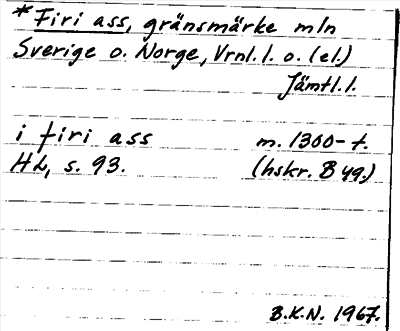 * Firi ass, gränsmärke mln
Sverige o. Norge, Vrnl.l. o. (el.)
Jämtl.l.
i firi ass m. 1300-t.
HL, s. 93. (hskr. B 49.)
B.K.N. 1967.